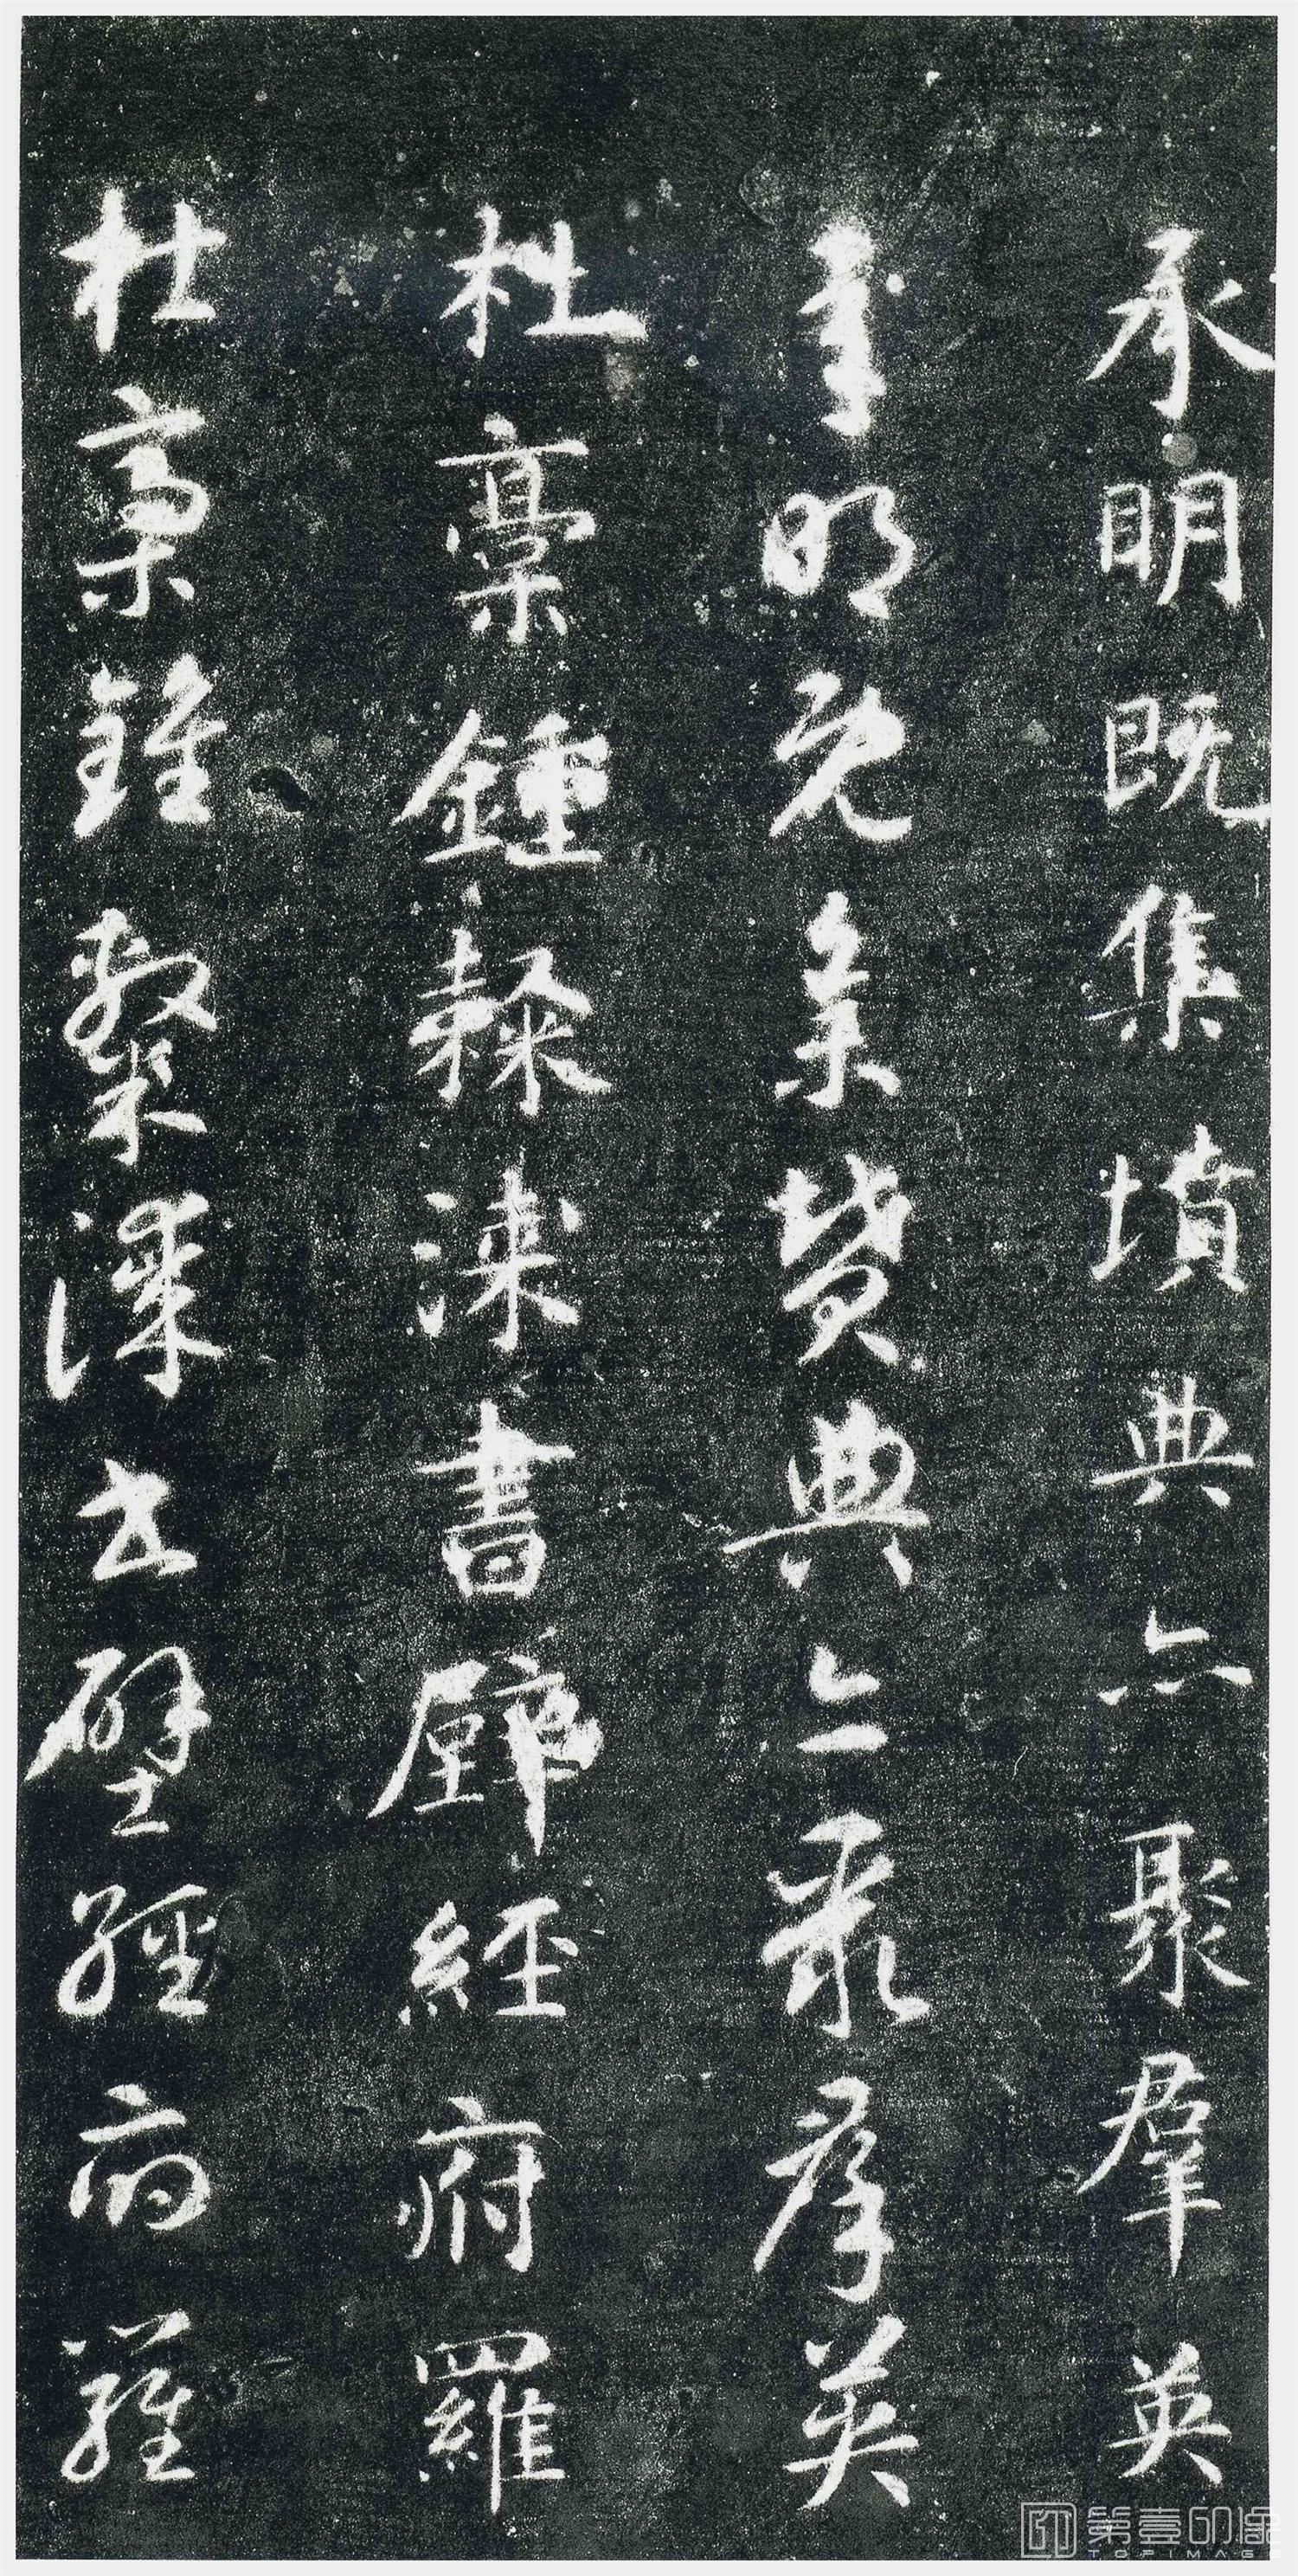 承明既集墳典亦聚羣英
承明既集墳典亦聚羣英
杜稾鍾隸漆書壁經府羅
杜稾鍾隸漆書壁經府羅
第壹印像
TOPIMAGE